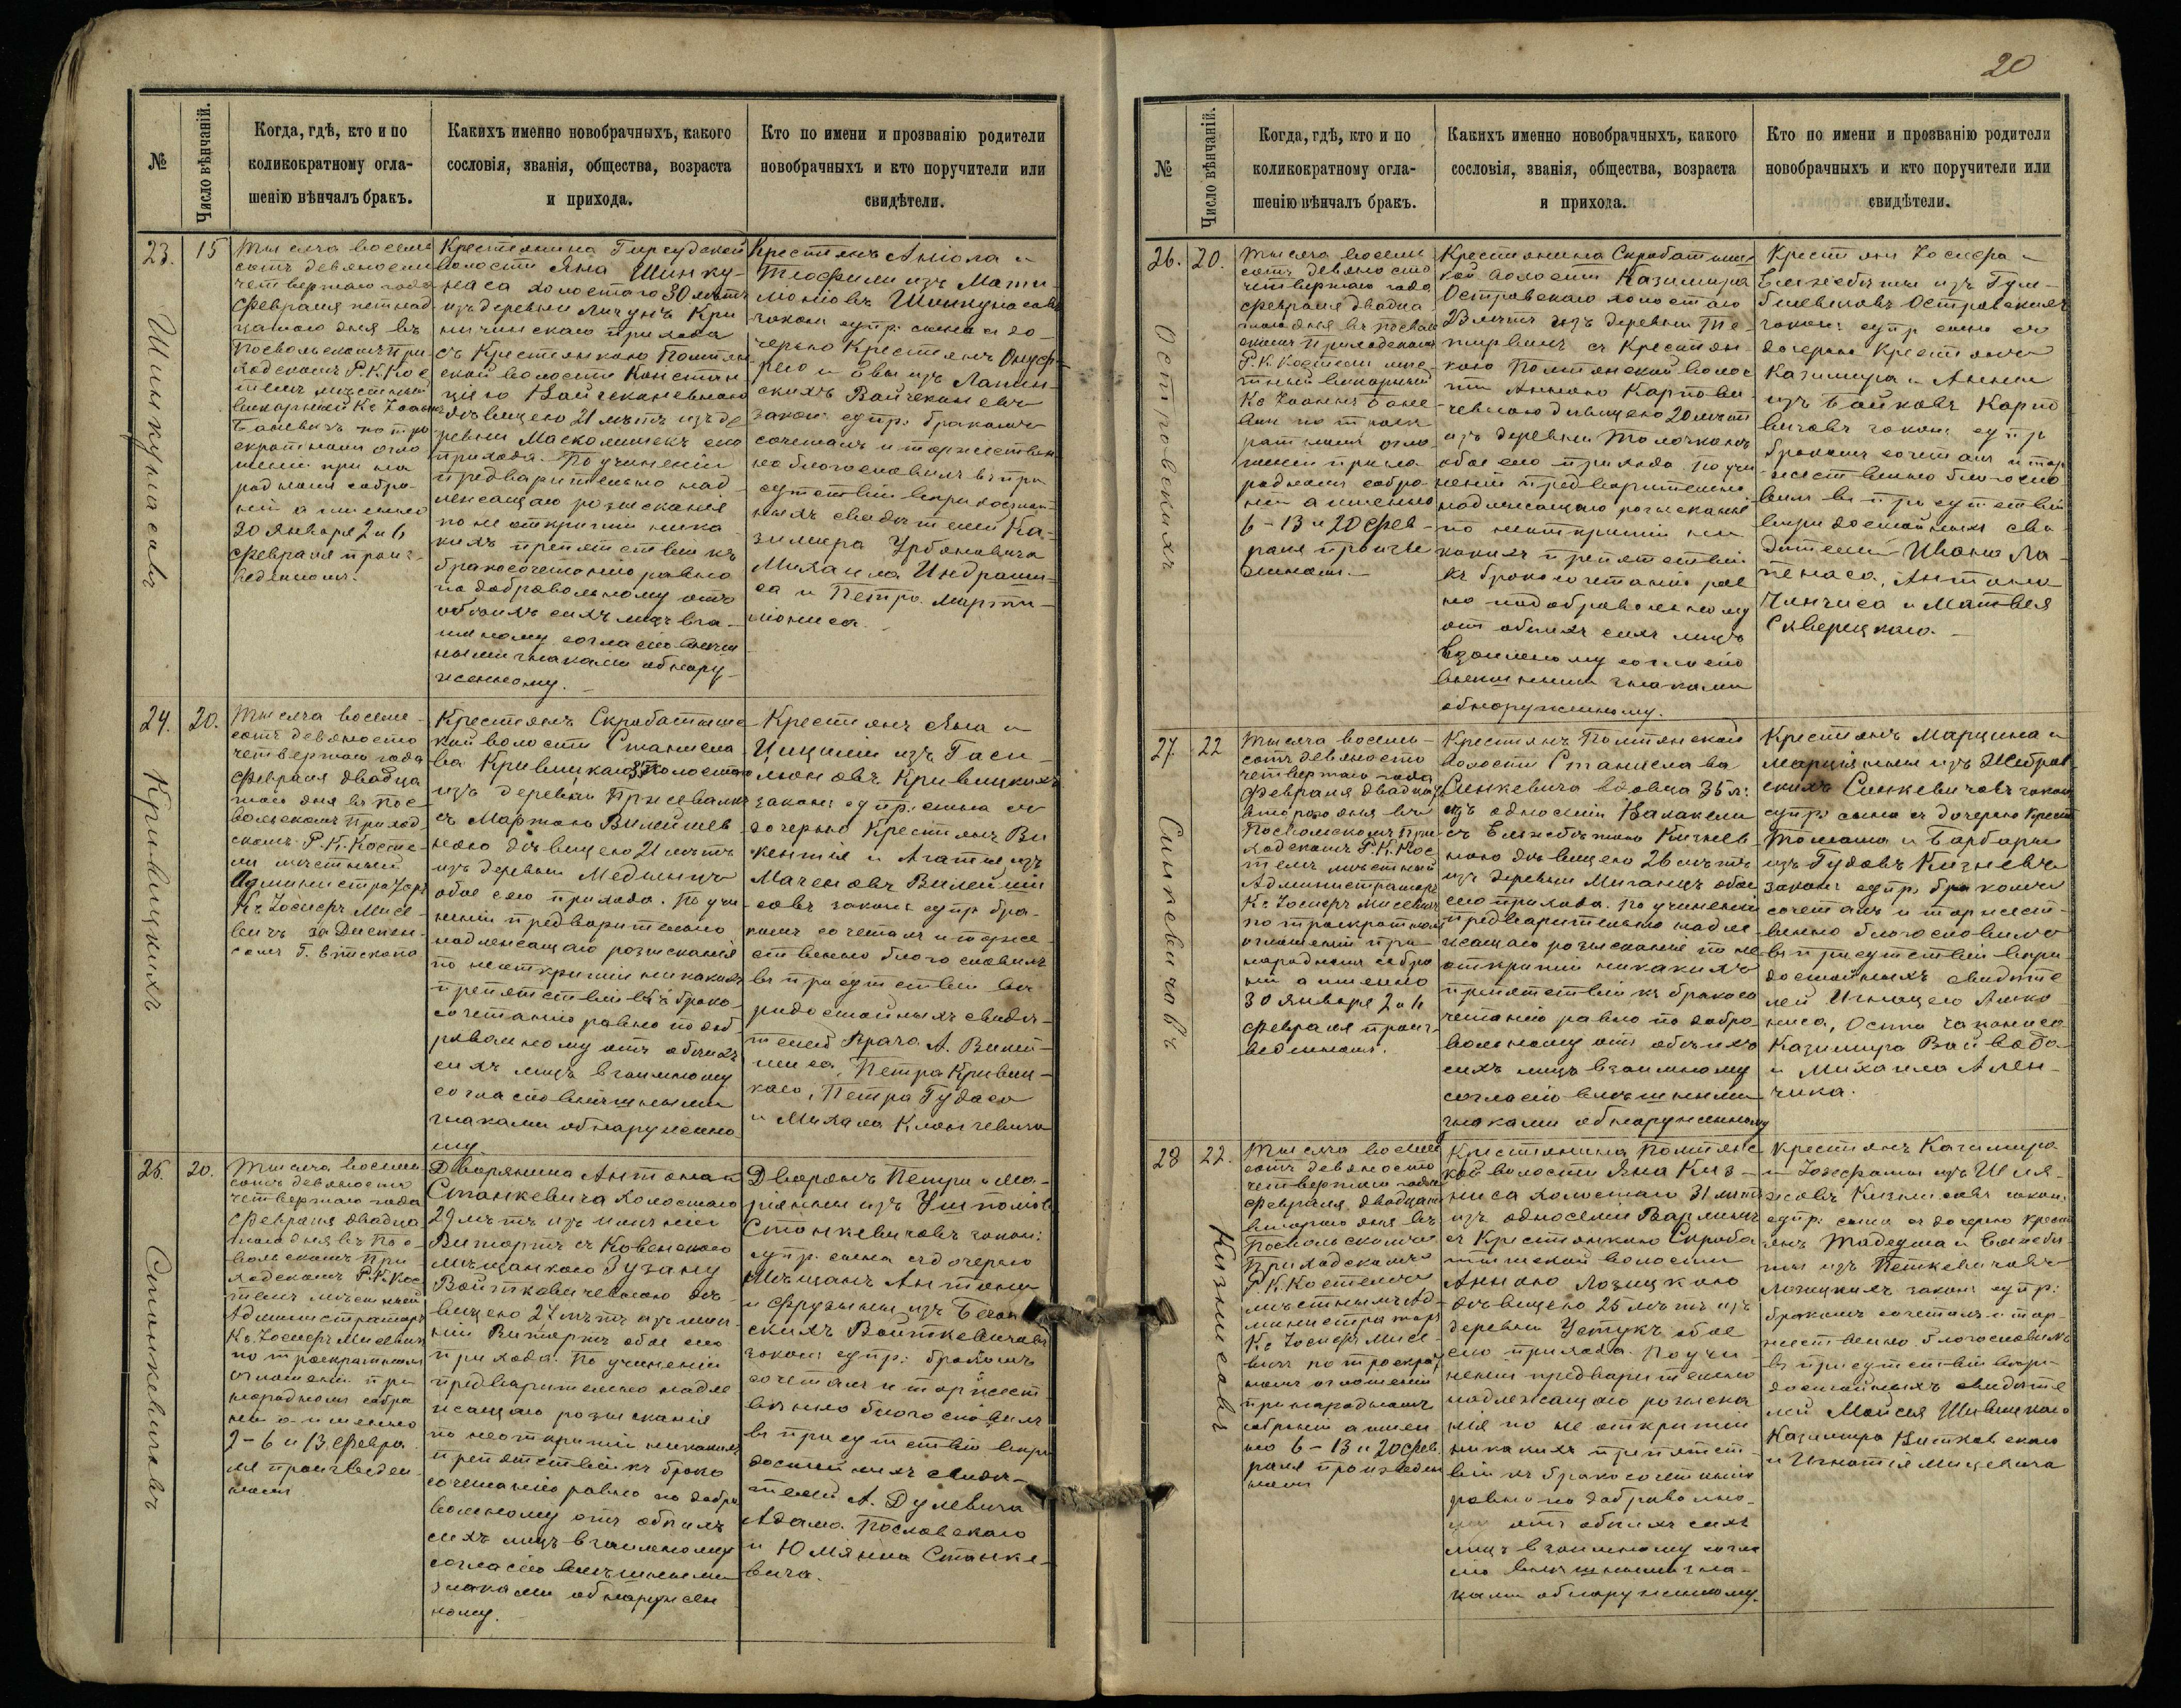 20
№
Число вѣнчаній.
Когда, гдѣ, кто и по
коликократному огла-
шенію вѣнчалъ бракъ.
Какихъ именно новобрачныхъ, какого
сословія, званія, общества, возраста
и прихода.
Кто по имени и прозванію родители
новобрачныхъ и кто поручители или
свидѣтели.
23.
15
Шинкунасовъ
Тысяча восемь
сотъ девяносто
четвертаго года
Февраля пятнад
цатаго дня въ
Посвольскомъ При
ходскомъ Р. К. Кос
телѣ мѣстный
викарный Кс Іоаннъ
по тро
екратномъ огло
шеніи при на
родномъ собра
ніи а именно
30 Января 2 и 6
Февраля произ-
веденномъ.
Крестьянина Гирсудской
волости Яна Шинку-
наса холостаго 30 лѣтъ
изъ деревни Кри
ничинскаго прихода
съ Крестьянкою Помпян
ской волости Констан
ціею Войчеканевною
дѣвицею 21 лѣтъ изъ де
ревни сего
прихода. По учиненіи
предварительно над
лежащаго розысканія
по не открытіи ника
кихъ препятствій къ
бракосочетанію равно
по добровольному отъ
обоихъ сихъ лицъ вза-
имному согласію внѣш
ными знаками обнару-
женному.
Крестьянъ Аніола и
Теофили изъ Мати-
ліонісвъ Шинкунасовъ
закон: супр: сына съ до-
черью Крестьянъ Онуф-
рею и Евы изъ Лапин-
скихъ Войчеканевъ
закон: супр: бракомъ
сочеталъ и торжествен
но благословилъ въ при
сутствіи вѣридостой-
ныхъ свидѣтелей Ка-
зимира Урбановича
Михаила Индраши-
са и Петра Марти-
ніониса.
24.
20.
Кривицкихъ
Тысяча восемь-
сотъ девяносто
четвертаго года
Февраля двадца
таго дня въ Пос-
вольскомъ Приход
скомъ Р. К. Косте-
лѣ мѣстный
Администраторъ
Кс Іосифъ Мисе-
вичъ за Диспен-
сомъ Г. Епископа
Крестьянъ Скробатишс
кой волости Станисла-
ва Кривицкаго холостаго
изъ деревни
съ Мартою Вилейшев
ною дѣвицею 21 лѣтъ
изъ деревни
обое сего прихода. По учи-
неніи предварительно
надлежащаго розысканія
по неоткрытіи никакихъ
препятствій къ брако-
сочетанію равно по доб-
ровольному отъ обоихъ
сихъ лицъ взаимному
согласію внѣшными
знаками обнаруженно
му.
Крестьянъ Яна и
Цициліи изъ Гаси-
люновъ Кривицкихъ
закон: супр: сына съ
дочерью Крестьянъ Ви
кентія и Агаты изъ
Маченовъ Вилейши
совъ закон: супр бра-
комъ сочеталъ и торже-
ственно благословилъ
въ присутствіи вѣ-
ридостойныхъ свидѣ-
телей Врача А. Вилей-
шиса, Петра Кривиц-
каго, Петра Гудаса
и Михаила Клончевича
25.
20.
Станкевичовъ
Тысяча восемь
сотъ девяносто
четвертаго года
Февраля двадца
таго дня въ Пос-
вольскомъ При
ходскомъ Р. К. Кос
телѣ мѣстный
Администраторъ
Кс Іосифъ Мисевичъ
по троекратномъ
оглошеніи при
народномъ собра
ніи а именно
2-6 и 13 Февра
ля произведен
номъ
Дворянина Антона
Станкевича холостаго
29 лѣтъ изъ имѣнія
Витартъ съ Ковенскою
мѣщанкою Зузану
Войткевичевною дѣ-
вицею 27 лѣтъ изъ имѣ-
нія Витартъ обое сего
прихода. По учиненіи
предварительно надле
жащаго розысканія
по неоткрытіи никакихъ
препятствій къ брако
сочетанію равно по добро
вольному отъ обоихъ
сихъ лицъ взаимному
согласію внѣшными
знаками обнаружен
ному.
Дворянъ Петра и Ма-
ріанны изъ
Станкевичовъ закон:
супр: сына съ дочерью
Мѣщанъ Антона
и Фрузыны изъ
скихъ Войткевичовъ
закон: супр: бракомъ
сочеталъ и торжест
венно благословилъ
въ присутствіи вѣри
достойныхъ свидѣ-
телей А. Дулевича
Адама Пославскаго
и Юліяна Станке-
вича.
№
Число вѣнчаній.
Когда, гдѣ, кто и по
коликократному огла-
шенію вѣнчалъ бракъ.
Какихъ именно новобрачныхъ, какого
сословія, званія, общества, возраста
и прихода.
Кто по имени и прозванію родители
новобрачныхъ и кто поручители или
свидѣтели.
26.
20.
Островскихъ
Тысяча восемь
сотъ девяносто
четвертаго года
Февраля двадца
таго дня въ Посволь
скомъ Приходскомъ
Р. К. Костелѣ мѣс-
тный викарный
Кс Іоаннъ
по троек
ратномъ огло
шеніи при на
родномъ собра-
ніи а именно
6-13 и 20 Фев-
раля произве
денномъ.
Крестьянина Скробатишс
кой волости Казимира
Островскаго холостаго
23 лѣтъ изъ деревни Те-
тирвинъ съ Крестьян-
кою Помпянской волос
ти Анною Карпови-
чевною дѣвицею 20 лѣтъ
изъ деревни Толочканъ
обое сего прихода. По учи
неніи предварительно
надлежащаго розысканія
по неоткрытіи ни
какихъ препятствій
къ бракосочетанію рав
но подобровольному
отъ обоихъ сихъ лицъ
взаимному согласію
внѣшными знаками
обноруженному.
Крестьянъ Іосифа и
Ельжбѣты изъ Гум-
Островскихъ
закон: супр: сына съ
дочерью Крестьянъ
Казимира и Анны
изъ Байковъ Карпо
вичовъ закон: супр
бракомъ сочеталъ и тор
жественно благосло
вилъ въ присутствіи
вѣридостойныхъ сви
дѣтелей Ивана Ла-
пенаса, Антона
Чинчиса и Матвея
Скверецкаго.
27.
22
Синкевичовъ
Тысяча восемь-
сотъ девяносто
четвертаго года
Февраля двадцать
втораго дня въ
Посвольскомъ При-
ходскомъ Р. К. Кос
телѣ мѣстный
Администраторъ
Кс Іосифъ Мисевичъ
по троекратномъ
оглошеніи при
народномъ собра
ніи а именно
30 Января 2 и 6
Февраля произ-
веденномъ.
Крестьянъ Помпянской
волости Станислава
Синкевича вдовца 35 л:
изъ односеліи
съ Ельжбѣтою Кизнев
ною дѣвицею 26 лѣтъ
изъ деревни Миганцъ обое
сего прихода. По учиненіи
предварительно надле
жащаго розысканія по не
открытіи никакихъ
препятствій къ бракосо
четанію равно по добро
вольному отъ обоихъ
сихъ лицъ взаимному
согласію внѣшными
знаками обнаруженному
Крестьянъ Марцина и
Марціанны изъ
скихъ Синкевичовъ закон
супр: сына съ дочерью Крест
Томаша и Барбары
изъ Гудовъ Кизневъ
закон: супр: бракомъ
сочеталъ и торжест-
венно благословилъ
въ присутствіи вѣри-
достойныхъ свидѣте
лей Игнацего
ниса, Осипа
Казимира Войвода-
и Михаила Ален-
чика.
28
22.
Кизнисовъ
Тысяча восемь
сотъ девяносто
четвертаго года
Февраля двадцать
втораго дня въ
Посвольскомъ
Приходскомъ
Р. К. Костелѣ
мѣстнымъ Ад-
министраторъ
Кс Іосифъ Мисе-
вичъ по троекрат
номъ оглошеніи
при народномъ
собраніи а имен
но 6-13 и 20 Фев.
раля произведен
номъ
Крестьянина Помпянс
кой волости Яна Киз-
ниса холостаго 31 лѣтъ
изъ односеліи
съ Крестьянкою Скроба
тишской волости
Анною Лозицкою
дѣвицею 25 лѣтъ изъ
деревни Устукъ обое
сего прихода. По учи
неніи предварительно
надлежащаго розыска
нія по не открытіи
никакихъ препятст-
вій къ бракосочетанію
равно по доброволь-
му отъ обоихъ сихъ
лицъ взаимному согла
сію внѣшными зна-
ками обнаруженному.
Крестьянъ Казимира
и Іозефаты изъ
Кизнисовъ закон:
супр: сына съ дочерью крест
янъ Тадеуша и Ельжбѣ-
ты изъ Петкевичовъ
Лозицкихъ закон: супр:
бракомъ сочеталъ и тор-
жественно благословилъ
въ присутствіи вѣри-
достойныхъ свидѣте
лей Моисея
Казимира Витковскаго
и Игнатія Мицевича